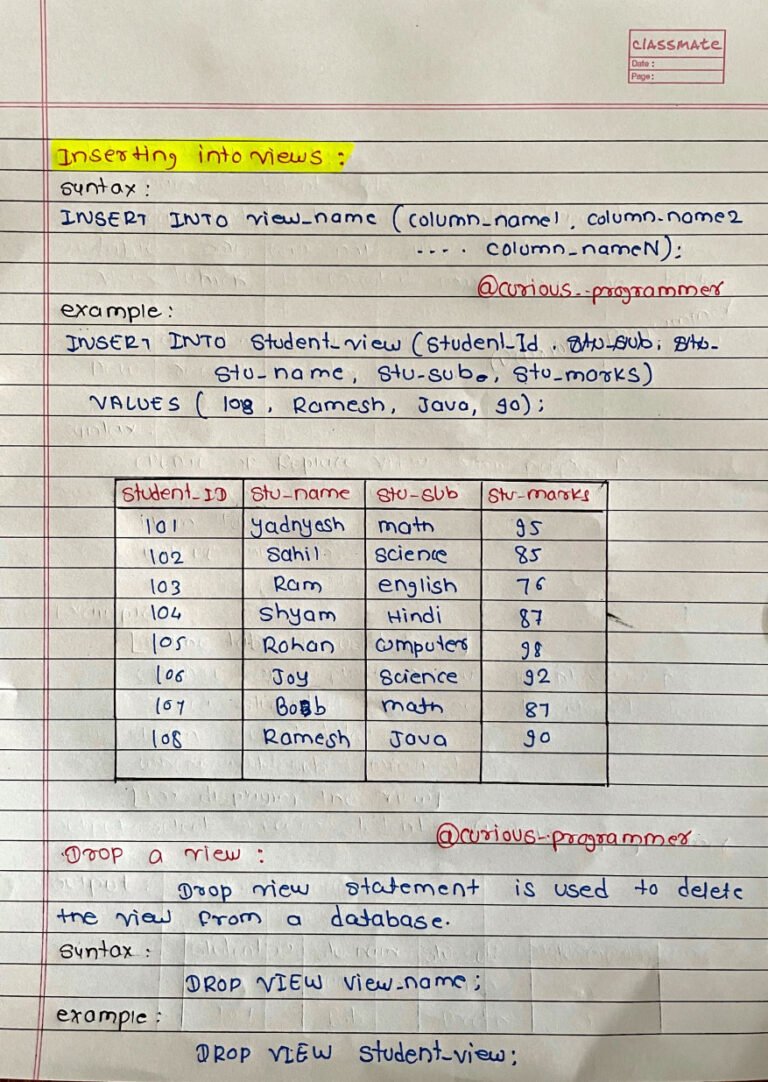 classmate
Date :
Page :
Inserting into views :
suntax :
INSERT INTO view_name (column_name1, column-name2
.... column_nameN);
@curious_programmer
example :
INSERT INTO Student_view (Student_Id, Stu-sub, Stu-
Stu-name, Stu-sub, Stu-marks)
VALUES ( 108, Ramesh, Java, 90);
Student_ID Stu-name Stu-sub Stu-marks
101 yadnyesh math 95
102 Sahil science 85
103 Ram english 76
104 Shyam Hindi 87
105 Rohan computer 98
106 Joy Science 92
107 Bob math 87
108 Ramesh Java 90
@curious_programmer
Drop a view :
Drop view statement is used to delete
the view from a database.
suntax :
DROP VIEW view_name ;
example :
DROP VIEW Student_view;